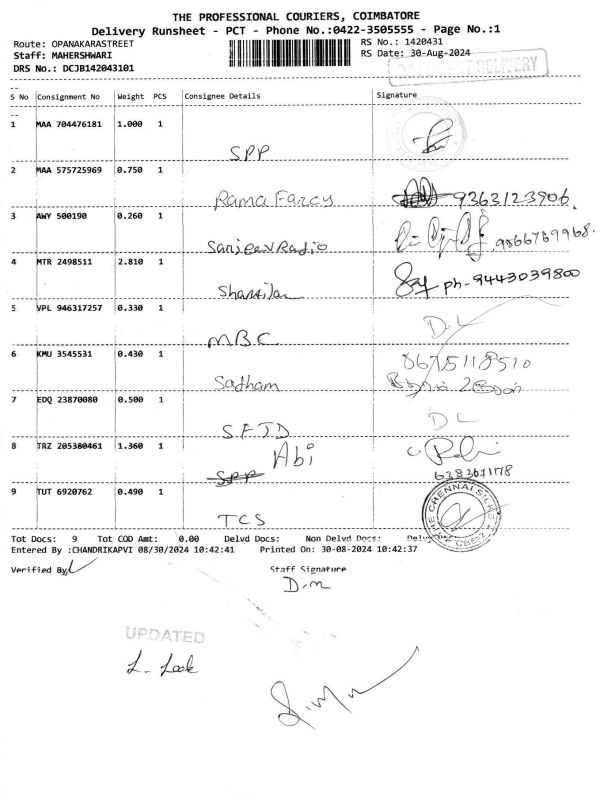 THE PROFESSIONAL COURIERS, COIMBATORE
Delivery Runsheet - PCT - Phone No.:0422-3505555 - Page No.:1
Route: OPANAKARASTREET RS No.: 1420431
Staff: MAHERSHWARI RS Date: 30-Aug-2024
DRS No.: DCJB142043101 DELIVERY
S No Consignment No Weight PCS Consignee Details Signature
1 MAA 704476181 1.000 1
SPP
2 MAA 575725969 0.750 1
Rama Farcy 9363123906.
3 AWY 500190 0.260 1
Sanjeev Radio 9866769968.
4 MTR 2498511 2.810 1
ph-9443039800
5 VPL 946317257 0.330 1 D.L
MBC
6 KMU 3545531 0.430 1 8675118510
Sadham
7 EDQ 23870080 0.500 1 DL
SFJD
8 TRZ 205380461 1.360 1 Abi
SPP 6383071178
9 TUT 6920762 0.490 1 THE CHENNAI SILKS CBE-2
TCS
Tot Docs: 9 Tot COD Amt: 0.00 Delvd Docs: Non Delvd Docs:
Entered By :CHANDRIKAPVI 08/30/2024 10:42:41 Printed On: 30-08-2024 10:42:37
Verified By Staff Signature
UPDATED